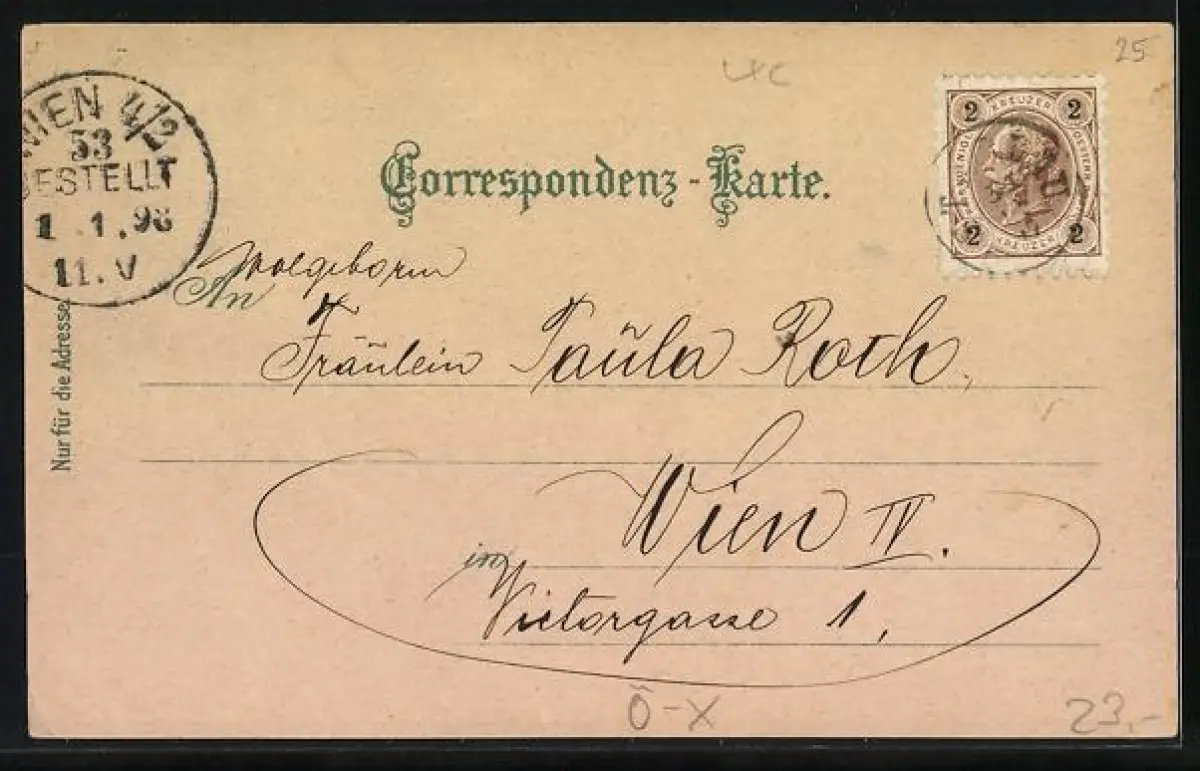 25
WIEN 4/2
53
BESTELLT
1.1.98
11.V
Correspondenz-Karte.
2 KREUZER 2
2 KREUZER 2
Wolgeboren
An
Fräulein Paŭla Roth,
Wien IV.
in
Victorgasse 1,
Nur für die Adresse.
Ö-X
23,-